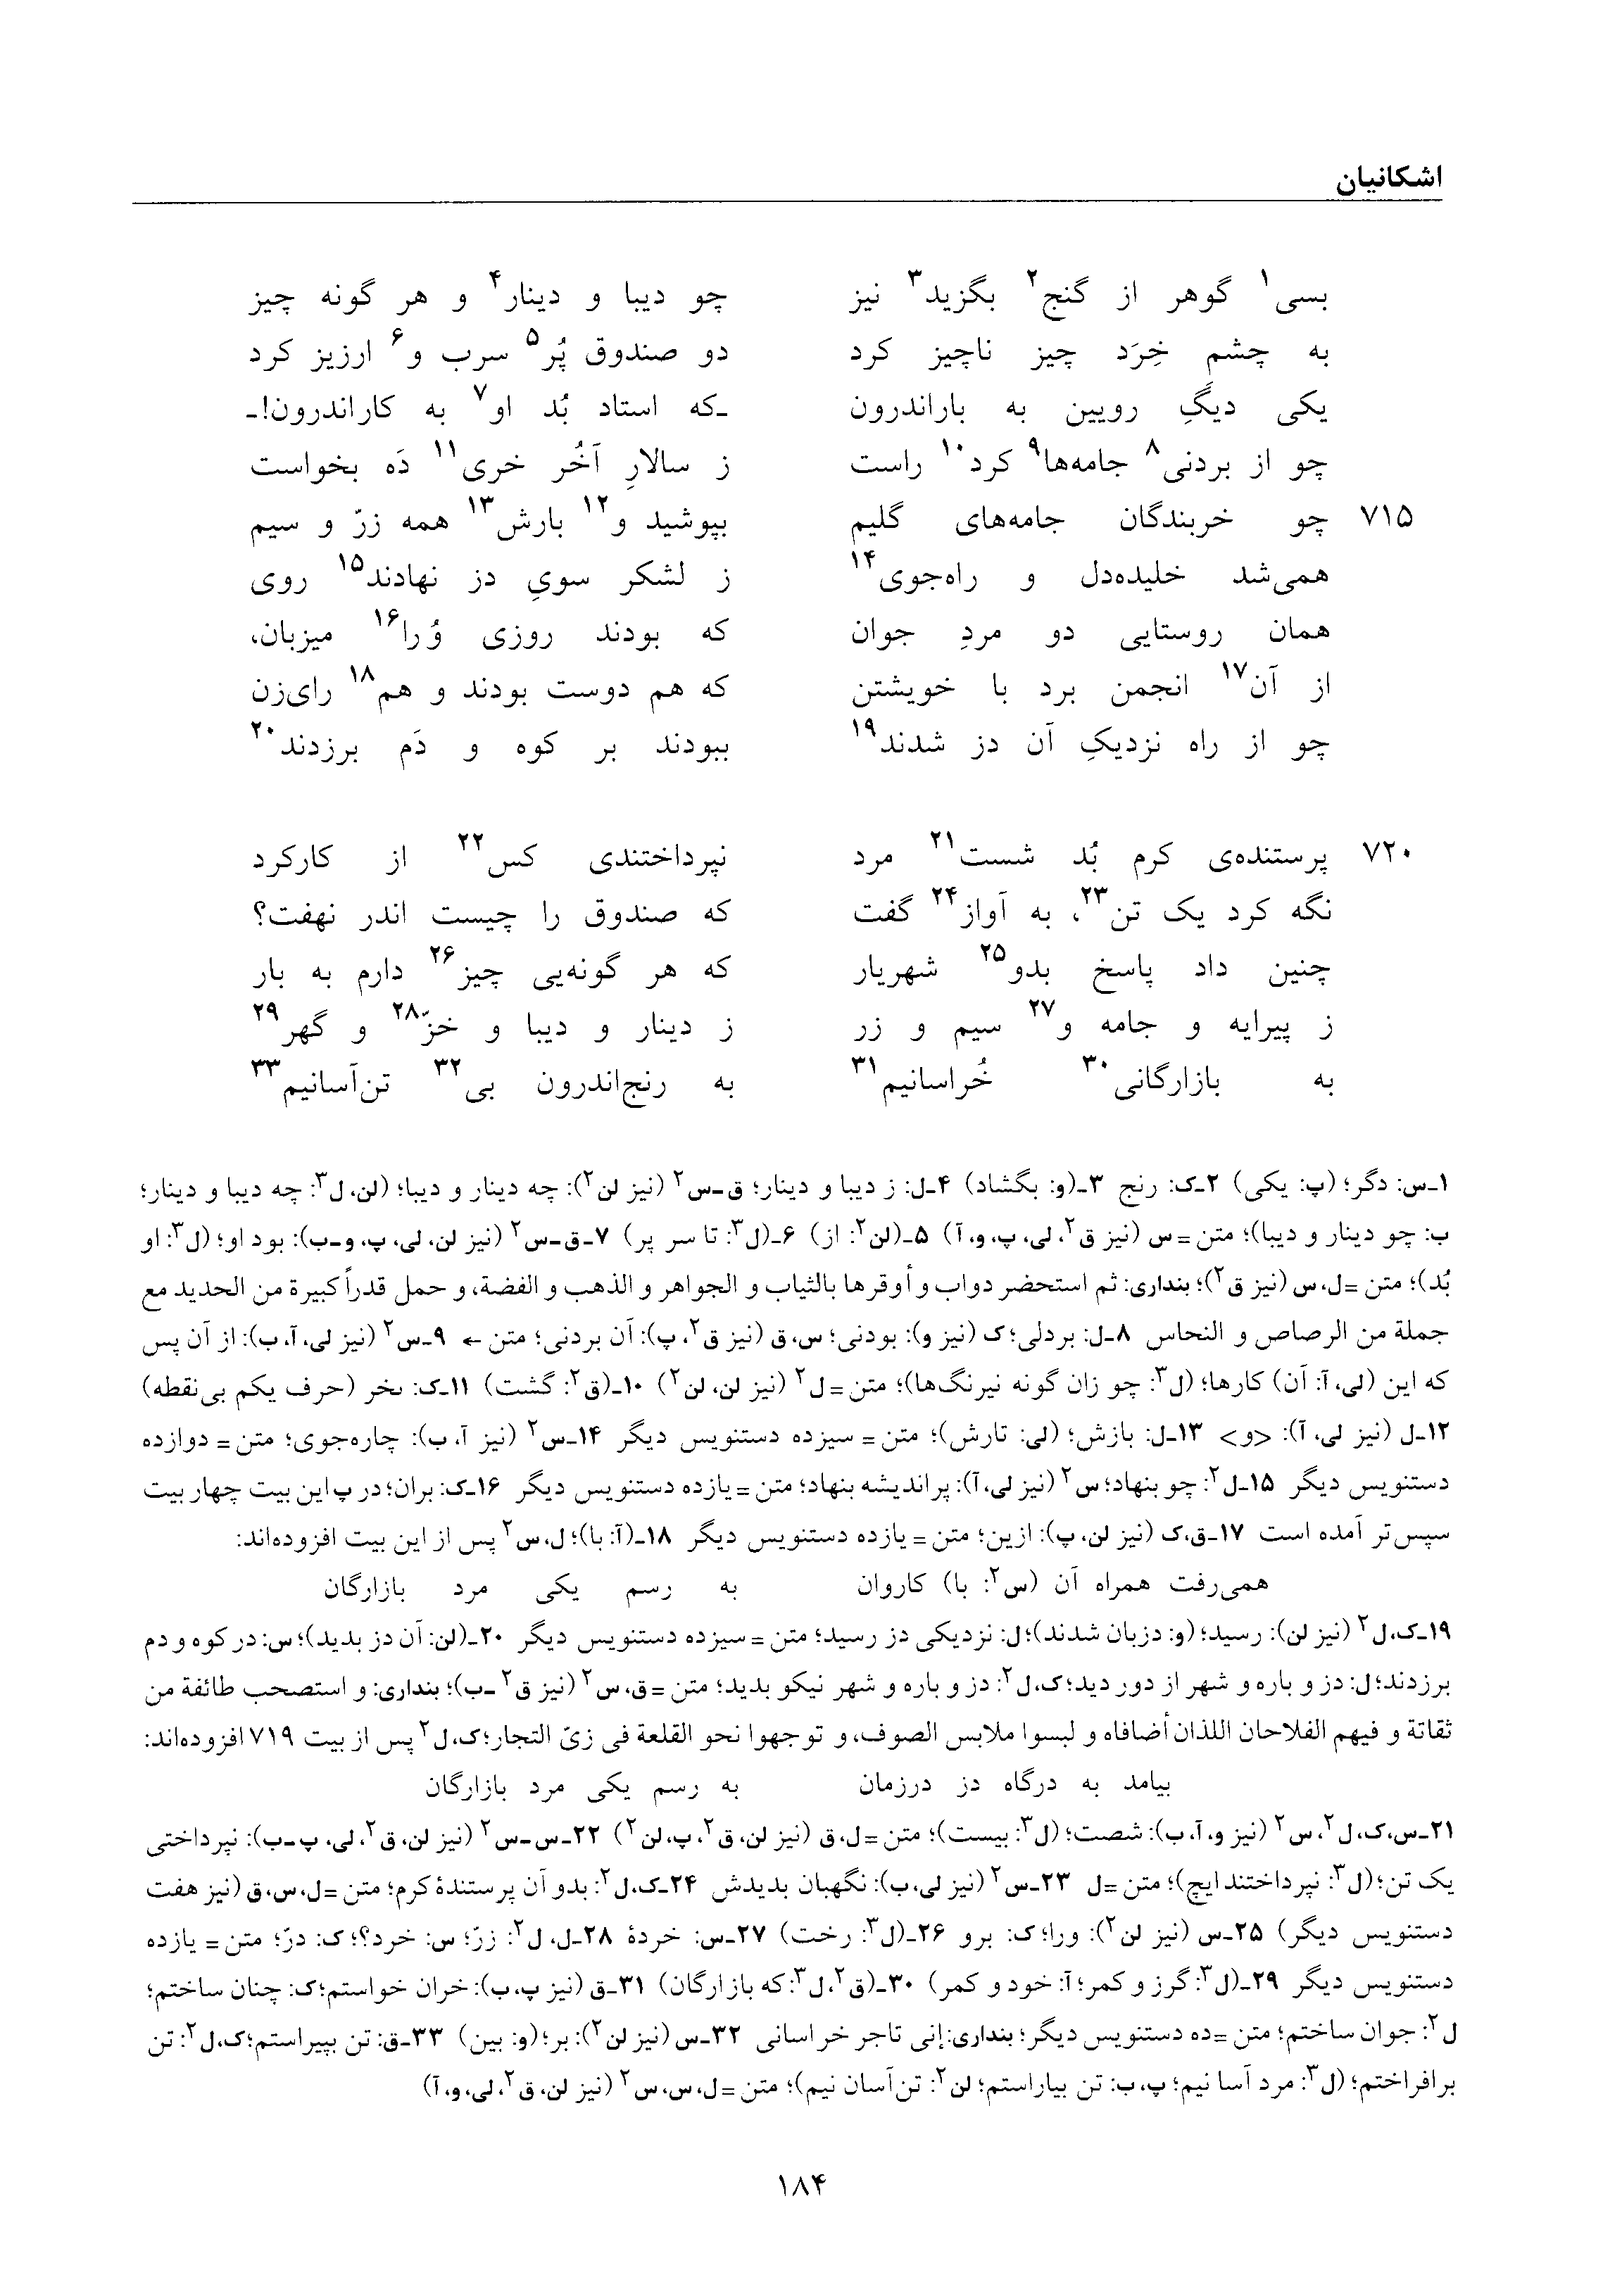 اشکانیان
بسی۱ گوهر از گنج۲ بگزید۳ نیز چو دیبا و دینار۴ و هر گونه چیز
به چشم خِرَد چیز ناچیز کرد دو صندوق پُر۵ سرب و۶ ارزیز کرد
یکی دیگِ رویین به باراندرون ـ‌که استاد بُد او۷ به کاراندرون!ـ
چو از بردنی۸ جامه‌ها۹ کرد۱۰ راست ز سالارِ آخُر خری۱۱ دَه بخواست
۷۱۵ چو خربندگان جامه‌های گلیم بپوشید و۱۲ بارش۱۳ همه زرّ و سیم
همی‌شد خلیده‌دل و راه‌جوی۱۴ ز لشکر سویِ دز نهادند۱۵ روی
همان روستایی دو مردِ جوان که بودند روزی وُرا۱۶ میزبان،
از آن۱۷ انجمن برد با خویشتن که هم دوست بودند و هم۱۸ رای‌زن
چو از راه نزدیکِ آن دز شدند۱۹ ببودند بر کوه و دَم برزدند۲۰
۷۲۰ پرستنده‌ی کرم بُد شست۲۱ مرد نپرداختندی کس۲۲ از کارکرد
نگه کرد یک تن۲۳، به آواز۲۴ گفت که صندوق را چیست اندر نهفت؟
چنین داد پاسخ بدو۲۵ شهریار که هر گونه‌یی چیز۲۶ دارم به بار
ز پیرایه و جامه و۲۷ سیم و زر ز دینار و دیبا و خزّ۲۸ و گهر۲۹
به بازارگانی۳۰ خُراسانیم۳۱ به رنج‌اندرون بی۳۲ تن‌آسانیم۳۳
۱ـ‌س: دگر؛ (پ: یکی) ۲ـ‌ک: رنج ۳ـ(و: بگشاد) ۴ـ‌ل: ز دیبا و دینار؛ ق‌ـ‌س۲ (نیز لن۲): چه دینار و دیبا؛ (لن، ل۳: چه دیبا و دینار؛
ب: چو دینار و دیبا)؛ متن = س (نیز ق۲، لی، پ، و، آ) ۵ـ(لن۲: از) ۶ـ(ل۳: تا سر پر) ۷ـ‌ق‌ـ‌س۲ (نیز لن، لی، پ، و‌ـ‌ب): بود او؛ (ل۳: او
بُد)؛ متن = ل، س (نیز ق۲)؛ بنداری: ثم استحضر دواب و أوقرها بالثیاب و الجواهر و الذهب و الفضة، و حمل قدراً کبیرة من الحدید مع
جملة من الرصاص و النحاس ۸ـ‌ل: بردلی؛ ک (نیز و): بودنی؛ س، ق (نیز ق۲، پ): آن بردنی؛ متن ← ۹ـ‌س۲ (نیز لی، آ، ب): از آن پس
که این (لی، آ: آن) کارها؛ (ل۳: چو زان گونه نیرنگ‌ها)؛ متن = ل۲ (نیز لن، لن۲) ۱۰ـ(ق۲: گشت) ۱۱ـ‌ک: ٮخر (حرف یکم بی‌نقطه)
۱۲ـ‌ل (نیز لی، آ): <و> ۱۳ـ‌ل: بازش؛ (لی: تارش)؛ متن = سیزده دستنویس دیگر ۱۴ـ‌س۲ (نیز آ، ب): چاره‌جوی؛ متن = دوازده
دستنویس دیگر ۱۵ـ‌ل۲: چو بنهاد؛ س۲ (نیز لی، آ): پراندیشه بنهاد؛ متن = یازده دستنویس دیگر ۱۶ـ‌ک: بران؛ در پ این بیت چهار بیت
سپس‌تر آمده است ۱۷ـ‌ق، ک (نیز لن، پ): ازین؛ متن = یازده دستنویس دیگر ۱۸ـ(آ: با)؛ ل، س۲ پس از این بیت افزوده‌اند:
همی‌رفت همراه آن (س۲: با) کاروان به رسم یکی مرد بازارگان
۱۹ـ‌ک، ل۲ (نیز لن): رسید؛ (و: دزبان شدند)؛ ل: نزدیکی دز رسید؛ متن = سیزده دستنویس دیگر ۲۰ـ(لن: آن دز بدید)؛ س: در کوه و دم
برزدند؛ ل: دز و باره و شهر از دور دید؛ ک، ل۲: دز و باره و شهر نیکو بدید؛ متن = ق، س۲ (نیز ق۲ـ‌ب)؛ بنداری: و استصحب طائفة من
ثقاتة و فیهم الفلاحان اللذان أضافاه و لبسوا ملابس الصوف، و توجهوا نحو القلعة فی زیّ التجار؛ ک، ل۲ پس از بیت ۷۱۹ افزوده‌اند:
بیامد به درگاه دز درزمان به رسم یکی مرد بازارگان
۲۱ـ‌س، ک، ل۲، س۲ (نیز و، آ، ب): شصت؛ (ل۳: بیست)؛ متن = ل، ق (نیز لن، ق۲، پ، لن۲) ۲۲ـ‌س‌ـ‌س۲ (نیز لن، ق۲، لی، پ‌ـ‌ب): نپرداختی
یک تن؛ (ل۳: نپرداختند ایچ)؛ متن = ل ۲۳ـ‌س۲ (نیز لی، ب): نگهبان بدیدش ۲۴ـ‌ک، ل۲: بدو آن پرستندۀ کرم؛ متن = ل، س، ق (نیز هفت
دستنویس دیگر) ۲۵ـ‌س (نیز لن۲): ورا؛ ک: برو ۲۶ـ(ل۳: رخت) ۲۷ـ‌س: خردۀ ۲۸ـ‌ل، ل۲: زرّ؛ س: خرد؟؛ ک: درّ؛ متن = یازده
دستنویس دیگر ۲۹ـ(ل۳: گرز و کمر؛ آ: خود و کمر) ۳۰ـ(ق۲، ل۳: که بازارگان) ۳۱ـ‌ق (نیز پ، ب): خران خواستم؛ ک: چنان ساختم؛
ل۲: جوان ساختم؛ متن = ده دستنویس دیگر؛ بنداری: إنی تاجر خراسانی ۳۲ـ‌س (نیز لن۲): بر؛ (و: بین) ۳۳ـ‌ق: تن بپیراستم؛ ک، ل۲: تن
برافراختم؛ (ل۳: مرد آسا نیم؛ پ، ب: تن بیاراستم؛ لن۲: تن‌آسان نیم)؛ متن = ل، س، س۲ (نیز لن، ق۲، لی، و، آ)
۱۸۴